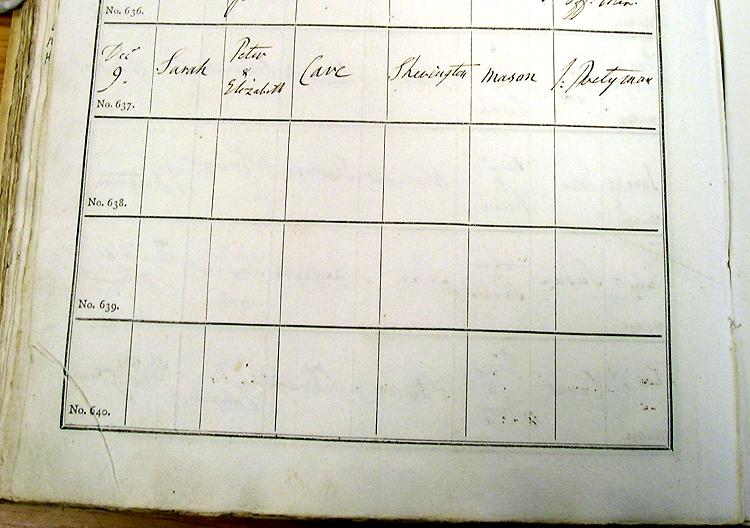 No. 636.
Off. Min.
Dec
9.
No. 637.
Sarah
Peter
&
Elizabeth
Cave
Shevington
Mason
J. Pretyman
No. 638.
No. 639.
No. 640.